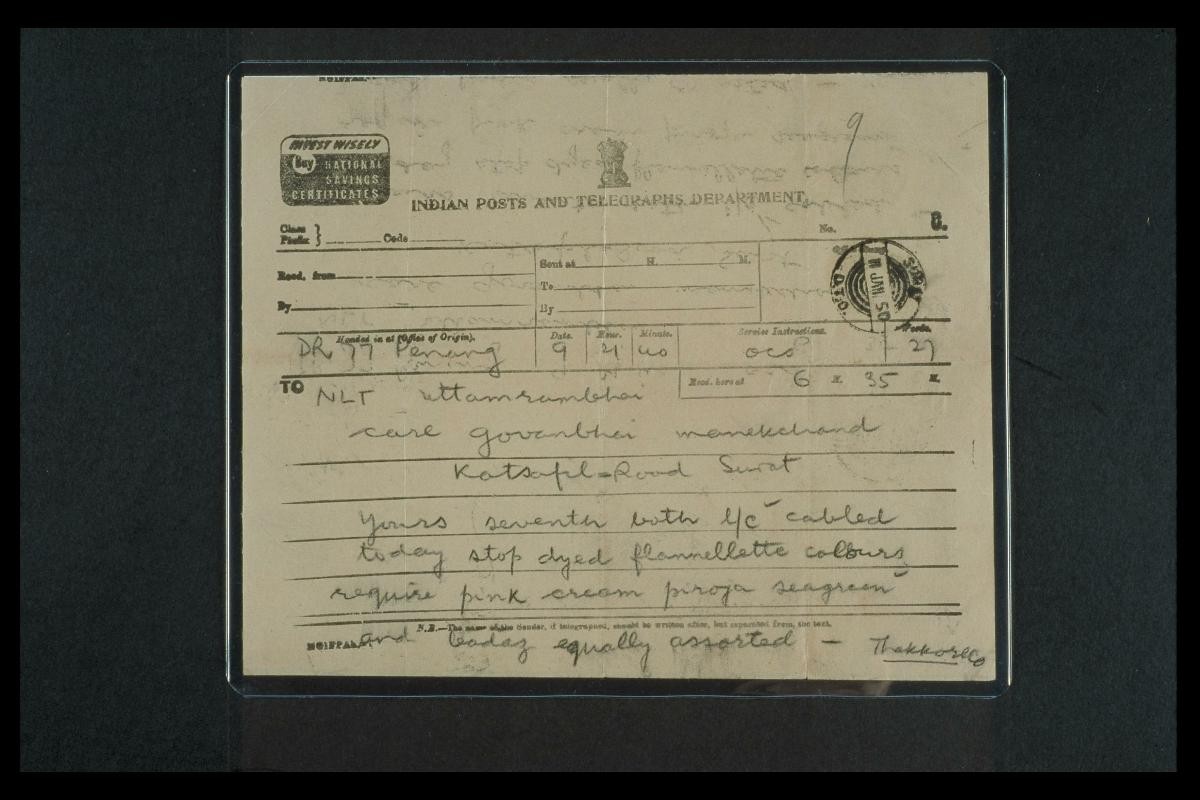 INVEST WISELY
Buy NATIONAL
SAVINGS
CERTIFICATES
9
INDIAN POSTS AND TELEGRAPHS DEPARTMENT
Class
Prefix } Code
No.
8.
Recd. from
Sent at H. M.
To
By
By
SURAT D.T.O. 11 JAN 50
Handed in at (Office of Origin). Date. Hour. Minute. Service Instructions. Words.
DR 77 Penang 9 21 40 oco 27
TO
Recd. here at 6 H. 35 M.
NLT Uttamrambhai
care govanbhai manekchand
Road Surat
Yours seventh both l/c cabled
today stop dyed flannellette colours
require pink cream piroja seagreen
N.B.—The name of the Sender, if telegraphed, should be written after, but separated from, the text.
and equally assorted – Thakkoreco